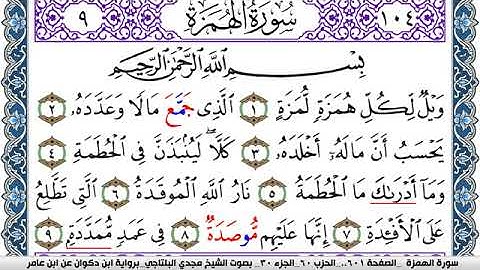 ١٠٤ سُورَةُ الْهُمَزَةِ ٩
بِسْمِ اللَّهِ الرَّحْمَٰنِ الرَّحِيمِ
وَيْلٌ لِكُلِّ هُمَزَةٍ لُمَزَةٍ ١ الَّذِي جَمَّعَ مَالًا وَعَدَّدَهُ ٢
يَحْسَبُ أَنَّ مَالَهُ أَخْلَدَهُ ٣ كَلَّا لَيُنْبَذَنَّ فِي الْحُطَمَةِ ٤
وَمَا أَدْرَىٰكَ مَا الْحُطَمَةُ ٥ نَارُ اللَّهِ الْمُوقَدَةُ ٦ الَّتِي تَطَّلِعُ
عَلَى الْأَفْئِدَةِ ٧ إِنَّهَا عَلَيْهِمْ مُوصَدَةٌ ٨ فِي عَمَدٍ مُمَدَّدَةٍ ٩
سورة الهمزة _الصفحة ٦٠١.. الحزب ٦٠_الجزء ٣٠_ بصوت الشيخ مجدي البلتاجي_برواية ابن دكوان عن ابن عامر